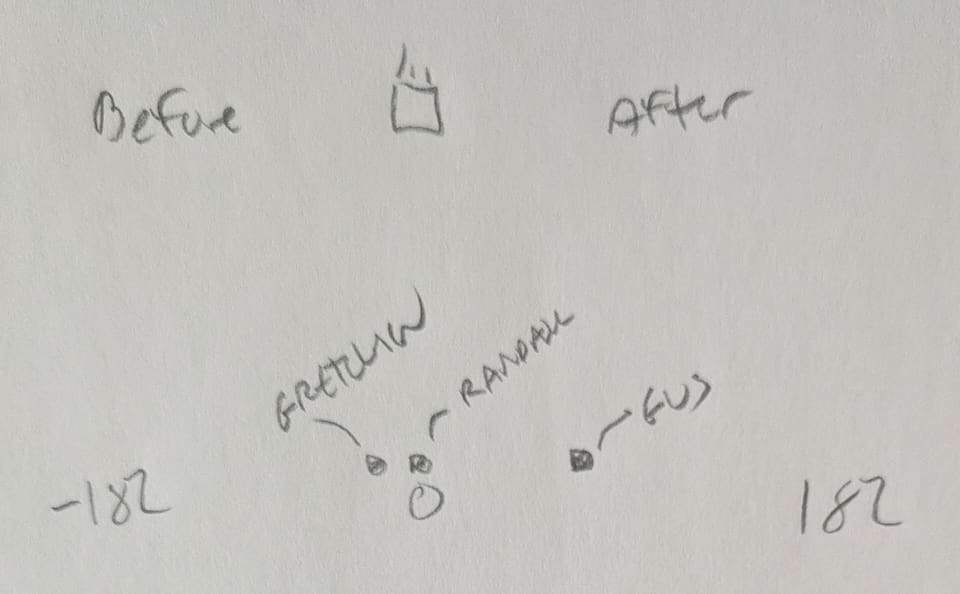 Before After
GRETCHEN
RANDALL
GUS
-182 0 182